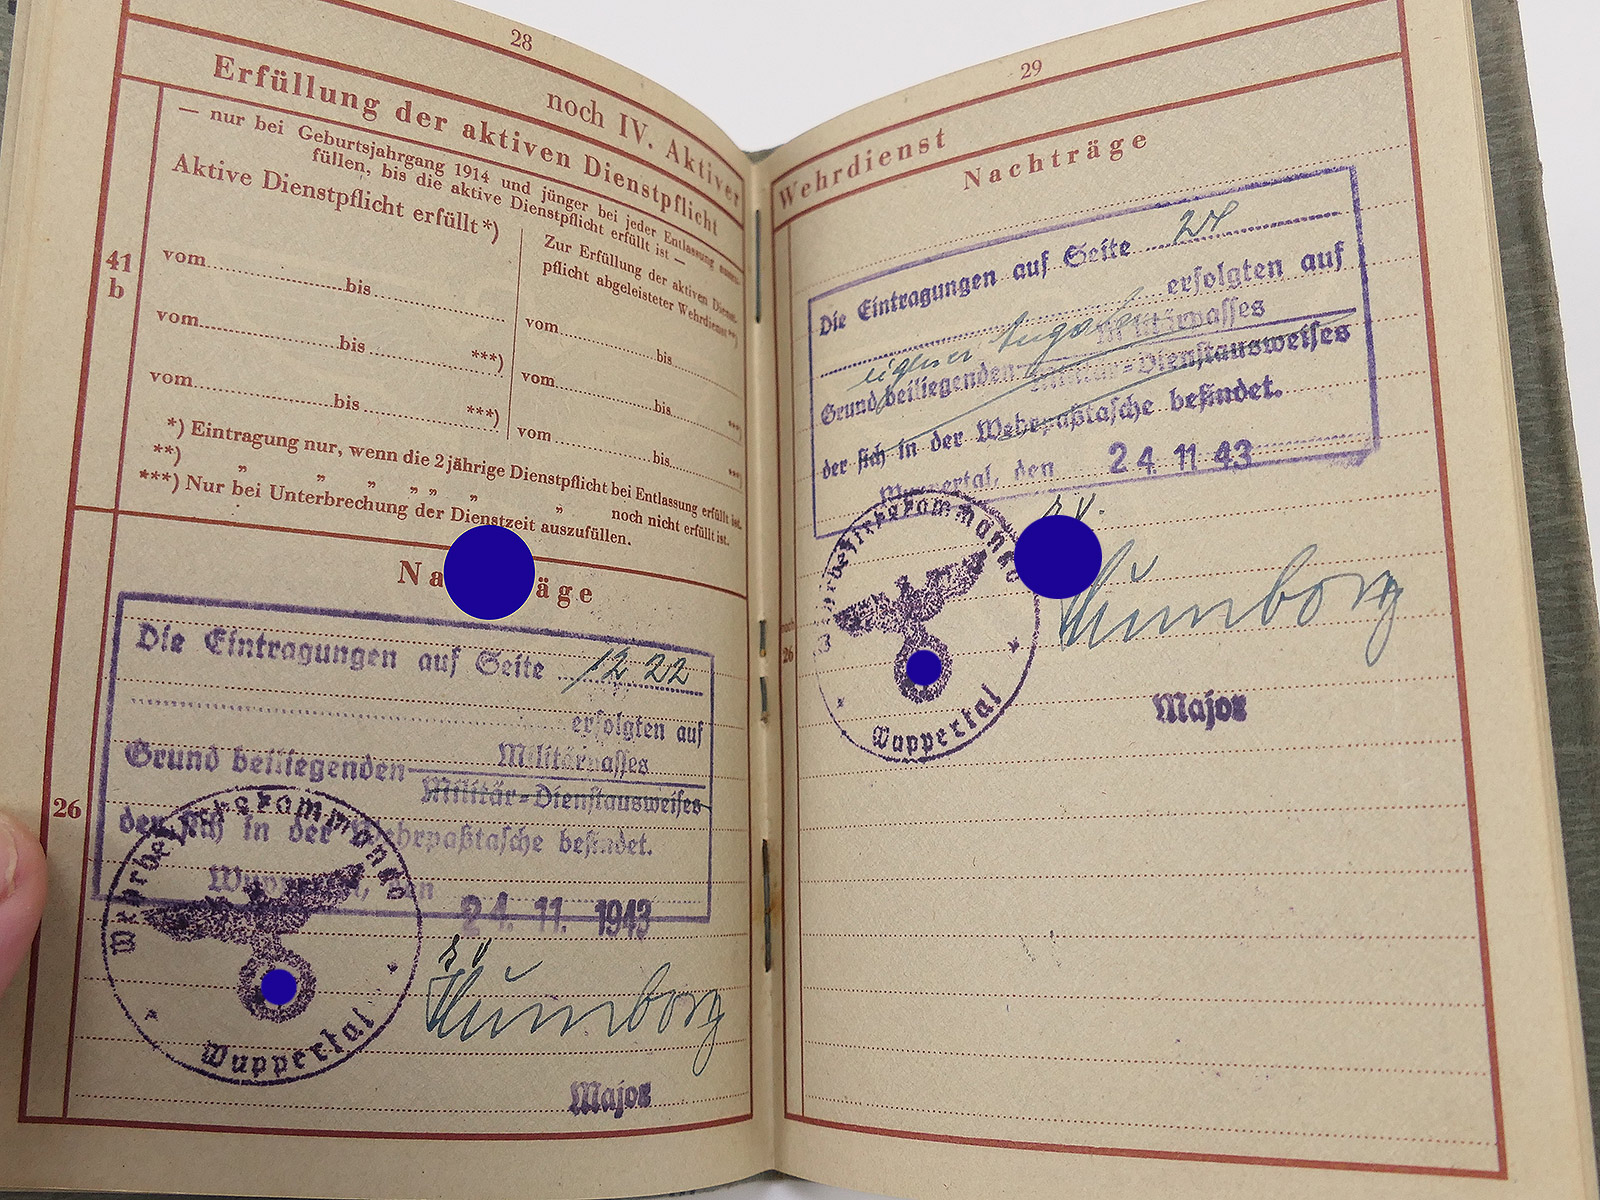 28
noch IV. Aktiver
Erfüllung der aktiven Dienstpflicht
— nur bei Geburtsjahrgang 1914 und jünger bei jeder Entlassung auszu-
füllen, bis die aktive Dienstpflicht erfüllt ist —
Aktive Dienstpflicht erfüllt *)
Zur Erfüllung der aktiven Dienst-
pflicht abgeleisteter Wehrdienst **)
41
b
vom bis
vom bis ***)
vom bis ***)
vom bis
vom bis ***)
vom bis ***)
*) Eintragung nur, wenn die 2 jährige Dienstpflicht bei Entlassung erfüllt ist.
**) „ „ „ „ „ „ „ noch nicht erfüllt ist.
***) Nur bei Unterbrechung der Dienstzeit auszufüllen.
Na äge
26
Die Eintragungen auf Seite 12 22
erfolgten auf
Grund beiliegenden Militärpasses
Militär-Dienstausweises
der sich in der Wehrpaßtasche befindet.
Wuppertal, den 24. 11. 1943
Wehrbezirkskommando
Wuppertal
Major
29
Wehrdienst
Nachträge
noch
26
Die Eintragungen auf Seite
erfolgten auf
eigener Angaben
Grund beiliegenden Militärpasses
Militär-Dienstausweises
der sich in der Wehrpaßtasche befindet.
Wuppertal, den 24 11 43
Wehrbezirkskommando
Wuppertal
Major